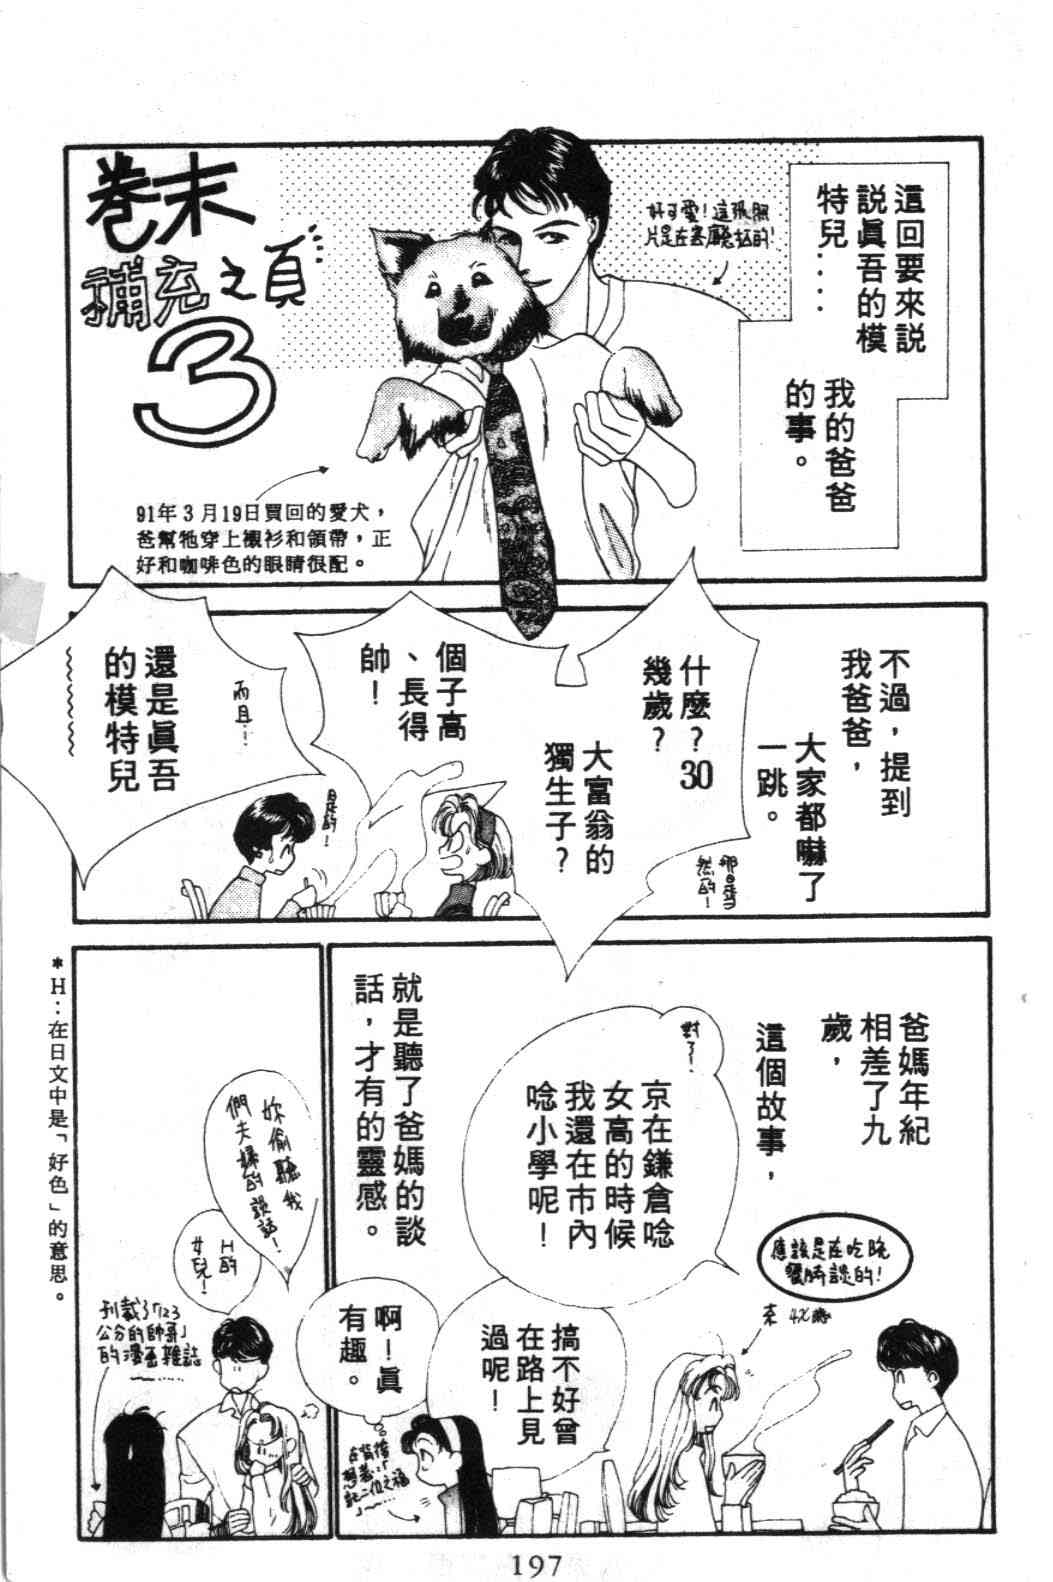 卷末
補充之頁
3
這回要來說
說眞吾的模
特兒……
我的爸爸
的事。
好可愛！這張照
91年3月19日買回的愛犬，
爸幫牠穿上襯衫和領帶，正
好和咖啡色的眼睛很配。
不過，提到
我爸爸，
大家都嚇了
一跳。
那是當
然的！
什麼？30
幾歲？
大富翁的
獨生子？
個子高
、長得
帥！
是的！
而且…
還是眞吾
的模特兒
爸媽年紀
相差了九
歲，
這個故事，
對了！
京在鎌倉唸
女高的時候
我還在市內
唸小學呢！
就是聽了爸媽的談
話，才有的靈感。
應該是在吃晚
飯時談的！
搞不好曾
在路上見
過呢！
啊！眞
有趣。
妳偷聽我
們夫婦的談話！
H的
女兒！
刊載了「123
公分的帥哥」
的漫画雜誌
*H：在日文中是「好色」的意思。
197